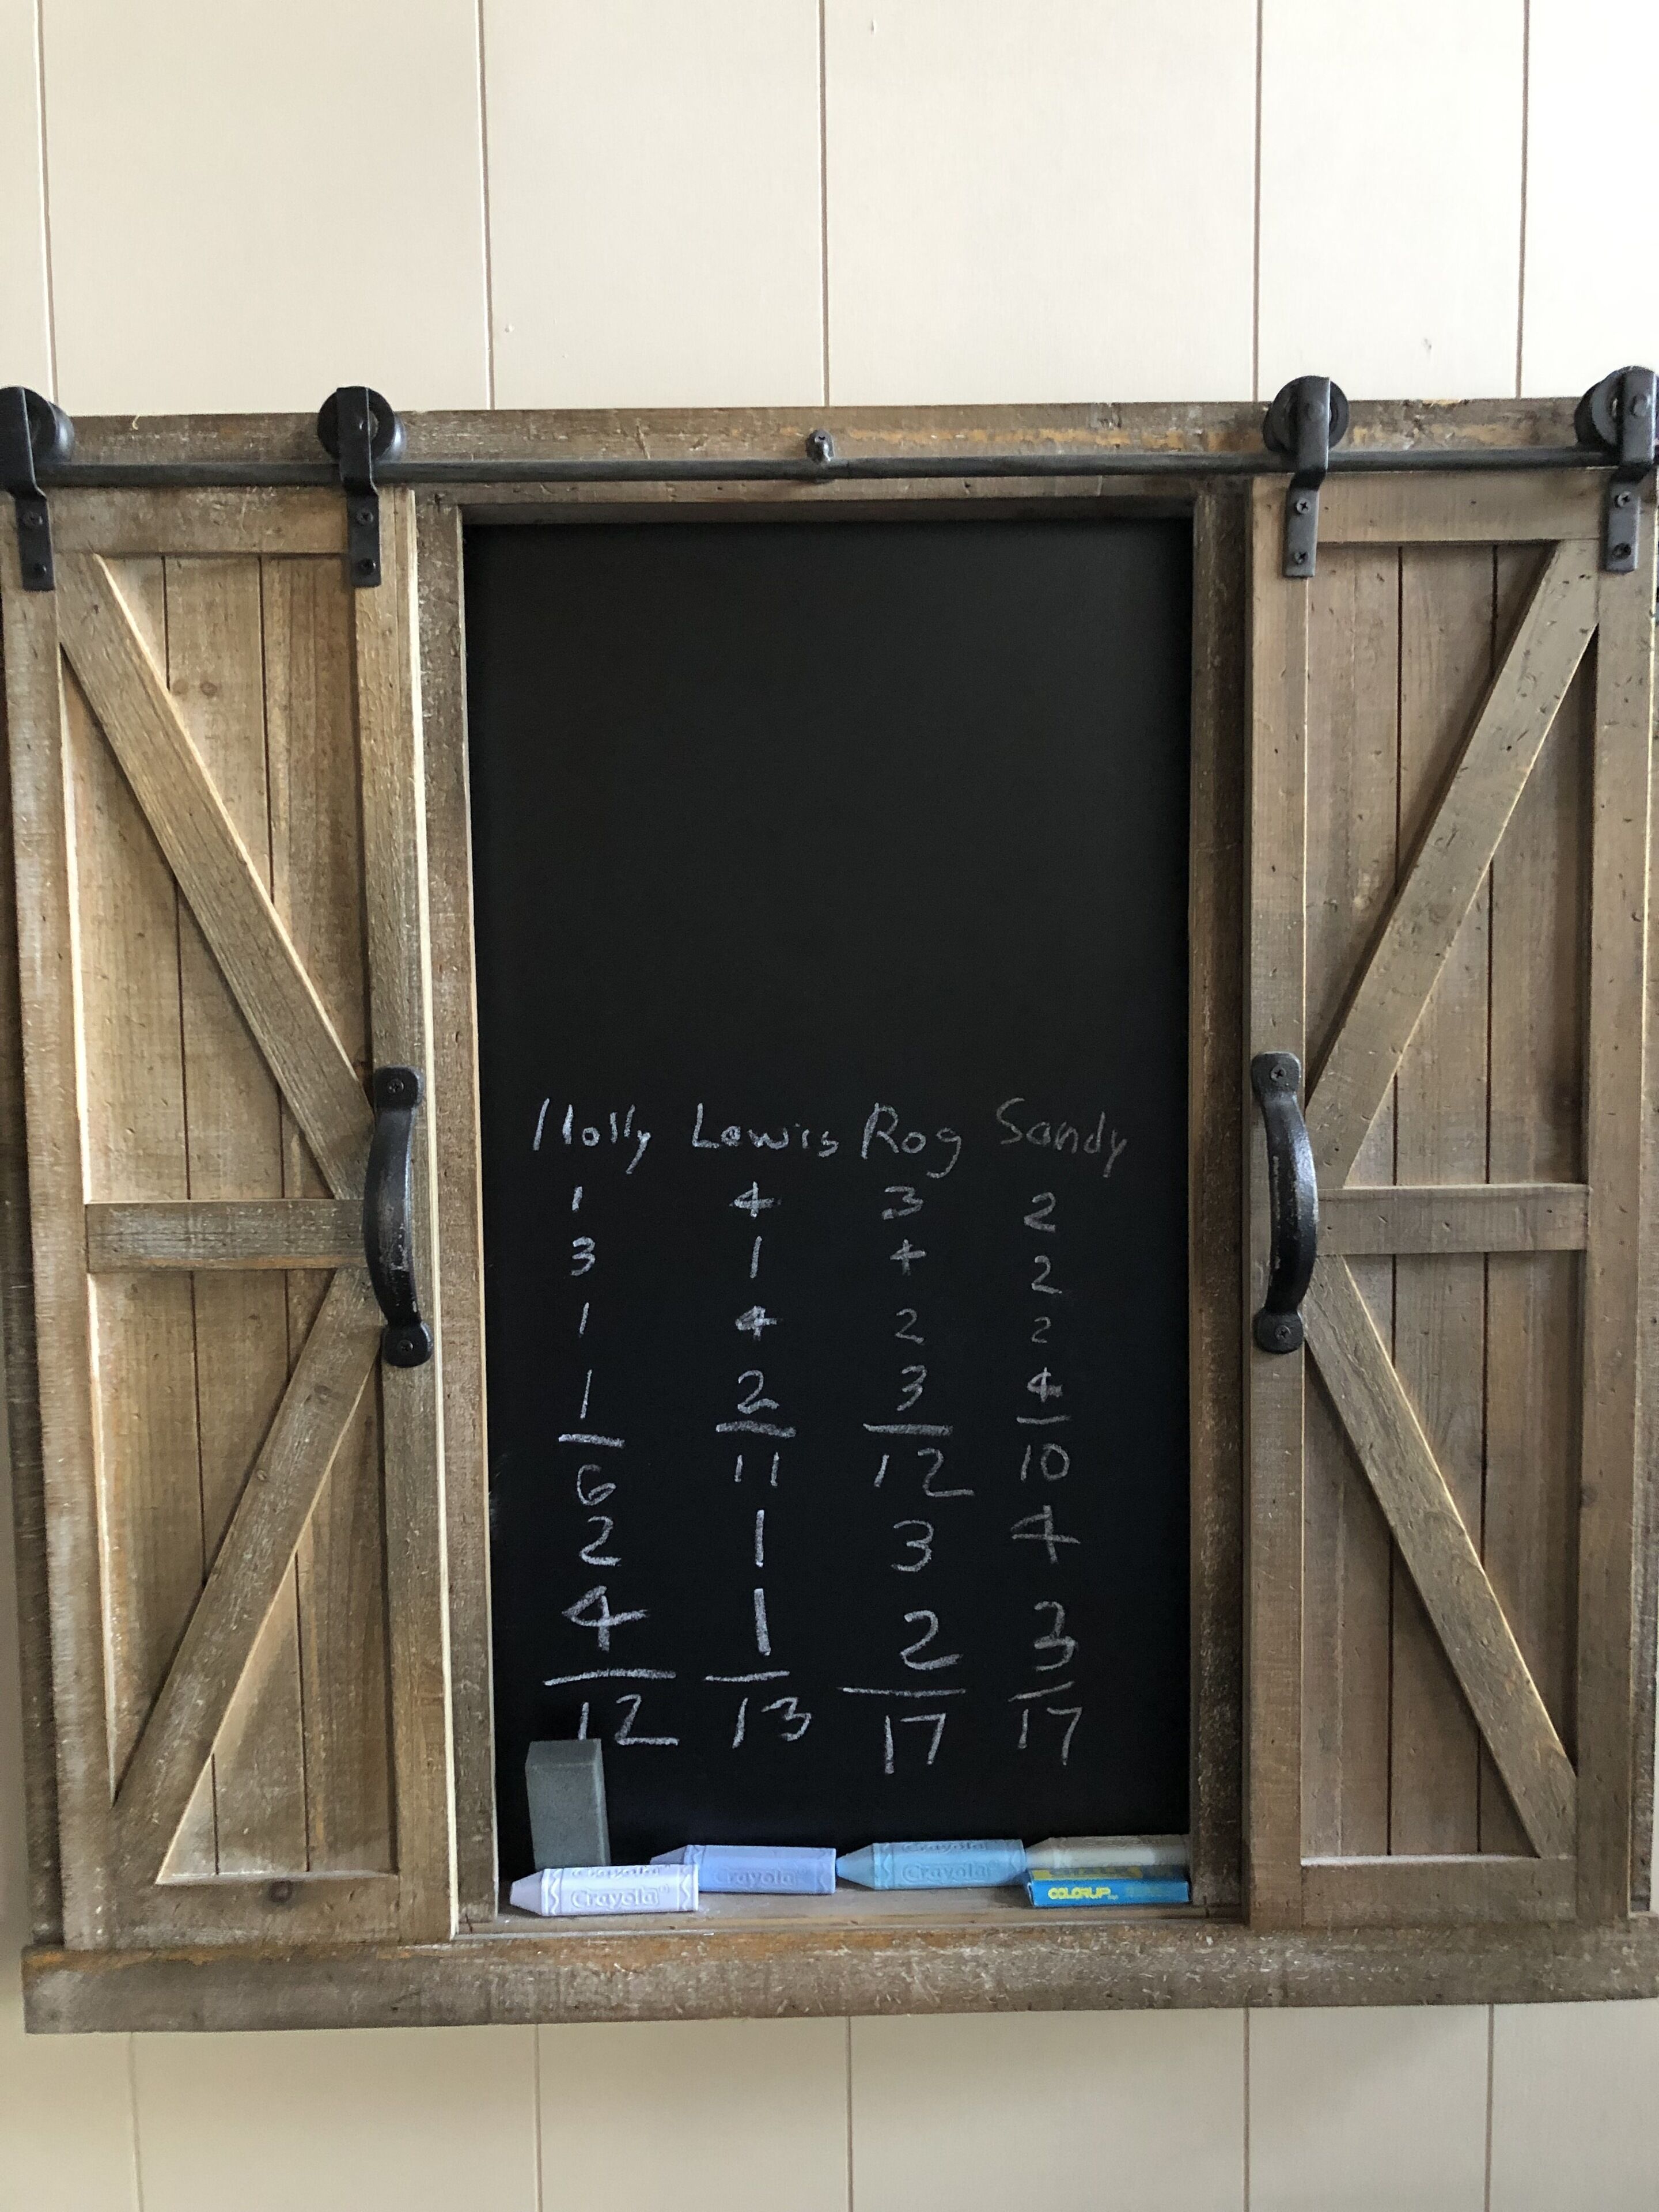 Holly Lewis Rog Sandy
1 4 3 2
3 1 4 2
1 4 2 2
1 2 3 4
6 11 12 10
2 1 3 4
4 1 2 3
12 13 17 17
Crayola Crayola
Crayola Crayola Crayola
COLORUP